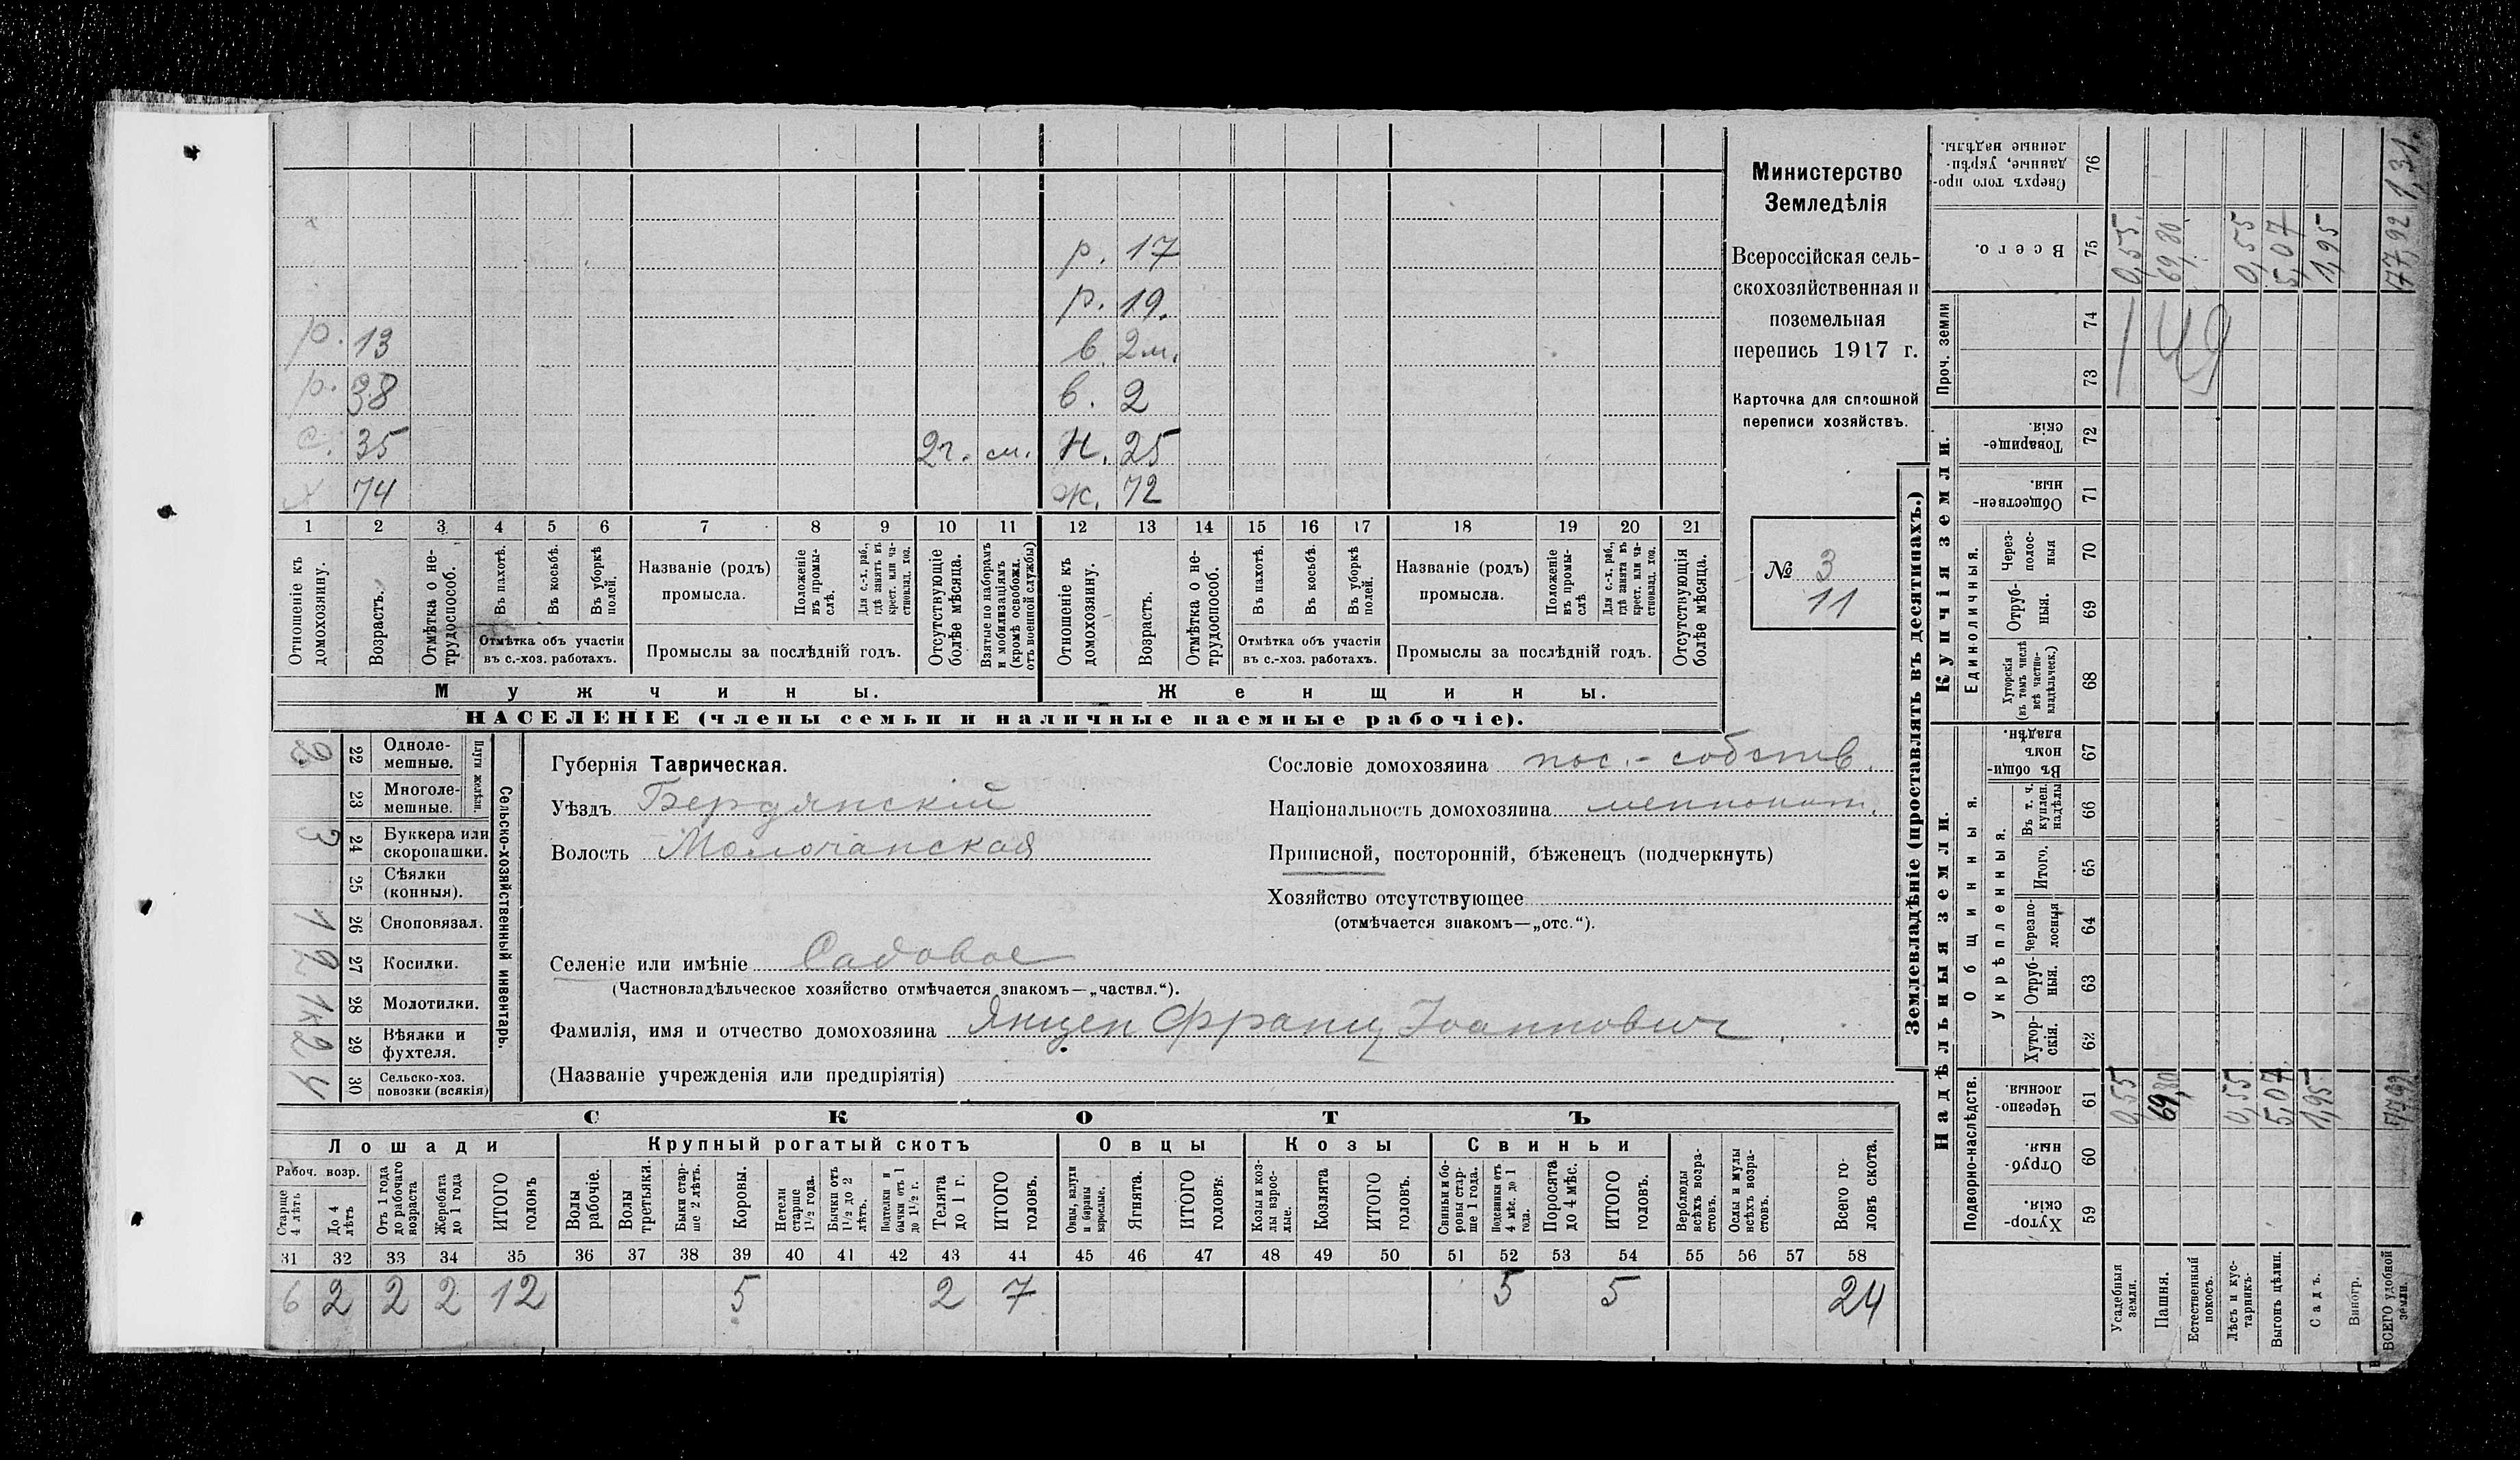 р. 17
р. 19.
р. 13 в 2 м.
р. 38 в. 2
с. 35 2 г. см. Н. 25
х 74 ж. 72
1 2 3 4 5 6 7 8 9 10 11 12 13 14 15 16 17 18 19 20 21
Отношеніе къ домохозяину.
Возрастъ.
Отмѣтка о нетрудоспособ.
Въ пахотѣ.
Въ косьбѣ.
Въ уборкѣ полей.
Отмѣтка объ участіи
въ с.-хоз. работахъ.
Названіе (родъ)
промысла.
Положеніе въ промыслѣ.
Для с.-х. раб., гдѣ занятъ въ крест. или частновлад. хоз.
Промыслы за послѣдній годъ.
Отсутствующіе болѣе мѣсяца.
Взятые по наборамъ и мобилизаціямъ (кромѣ освобожд. отъ военной службы)
Отношеніе къ домохозяину.
Возрастъ.
Отмѣтка о нетрудоспособ.
Въ пахотѣ.
Въ косьбѣ.
Въ уборкѣ полей.
Отмѣтка объ участіи
въ с.-хоз. работахъ.
Названіе (родъ)
промысла.
Положеніе въ промыслѣ
Для с.-х. раб., гдѣ занята въ крест. или частновлад. хоз.
Промыслы за послѣдній годъ.
Отсутствующія болѣе мѣсяца.
Мужчины.
Женщины.
НАСЕЛЕНІЕ (члены семьи и наличные наемные рабочіе).
Министерство
Земледѣлія
Всероссійская сель-
скохозяйственная и
поземельная
перепись 1917 г.
Карточка для сплошной
переписи хозяйствъ.
№ 3
11
Сельско-хозяйственный инвентарь.
Плуги желѣзн.
2 22 Однолемешные.
23 Многолемешные.
3 24 Буккера или скоропашки.
25 Сѣялки (конныя).
1 26 Сноповязал.
2 27 Косилки.
1к 28 Молотилки.
2 29 Вѣялки и фухтеля.
4 30 Сельско-хоз. повозки (всякія)
Губернія Таврическая.
Уѣздъ Бердянскій
Волость Молочанская
Сословіе домохозяина пос.-собств.
Національность домохозяина меннонит.
Приписной, посторонній, бѣженецъ (подчеркнуть)
Хозяйство отсутствующее
(отмѣчается знакомъ—„отс.“).
Селеніе или имѣніе Садовое
(Частновладѣльческое хозяйство отмѣчается знакомъ—„частвл.“).
Фамилія, имя и отчество домохозяина Янцен Франц Іоаннович
(Названіе учрежденія или предпріятія)
СКОТЪ
Лошади Крупный рогатый скотъ Овцы Козы Свиньи
Рабоч. возр.
Старше 4 лѣтъ
До 4 лѣтъ
Отъ 1 года до рабочаго возраста
Жеребята до 1 года
ИТОГО головъ
Волы рабочіе.
Волы третьяки.
Быки старше 2 лѣтъ.
Коровы.
Нетели старше 1½ года.
Бычки отъ 1½ до 2 лѣтъ.
Подтелки и бычки отъ 1 до 1½ г.
Телята до 1 г.
ИТОГО головъ.
Овцы, валухи и бараны взрослые.
Ягнята.
ИТОГО головъ.
Козы и козлы взрослые.
Козлята
ИТОГО головъ.
Свиньи и боровы старше 1 года.
Подсвинки отъ 4 мѣс. до 1 года.
Поросята до 4 мѣс.
ИТОГО головъ.
Верблюды всѣхъ возрастовъ.
Ослы и мулы всѣхъ возрастовъ.
Всего головъ скота.
31 32 33 34 35 36 37 38 39 40 41 42 43 44 45 46 47 48 49 50 51 52 53 54 55 56 57 58
6 2 2 2 12 5 2 7 5 5 24
Землевладѣніе (проставлять въ десятинахъ.)
Надѣльныя земли.
Купчія земли.
Проч. земли
Сверхъ того проданные, укрѣпленные надѣлы. 76
Всего. 75
74
73
Товарищескія. 72
Общественныя. 71
Единоличныя.
Черезполосныя 70
Отрубныя. 69
Хуторскія (въ томъ числѣ всѣ частновладѣльческ.) 68
Общинныя.
Въ общинномъ владѣн. 67
Укрѣпленныя.
Въ т. ч. куплен. надѣлы 66
Итого. 65
Черезполосныя 64
Отрубныя. 63
Хуторскія. 62
Подворно-наслѣдств.
Черезполосныя. 61
Отрубныя. 60
Хуторскія. 59
Усадебныя земли. 0,55 0,55
Пашня. 69,80 69,80
Естественный покосъ.
Лѣсъ и кустарникъ. 0,55 0,55
Выгонъ цѣлин. 5,07 5,07
Садъ. 1,95 1,95
Виногр.
ВСЕГО удобной земли. 77,92 77,92 1,31.
149